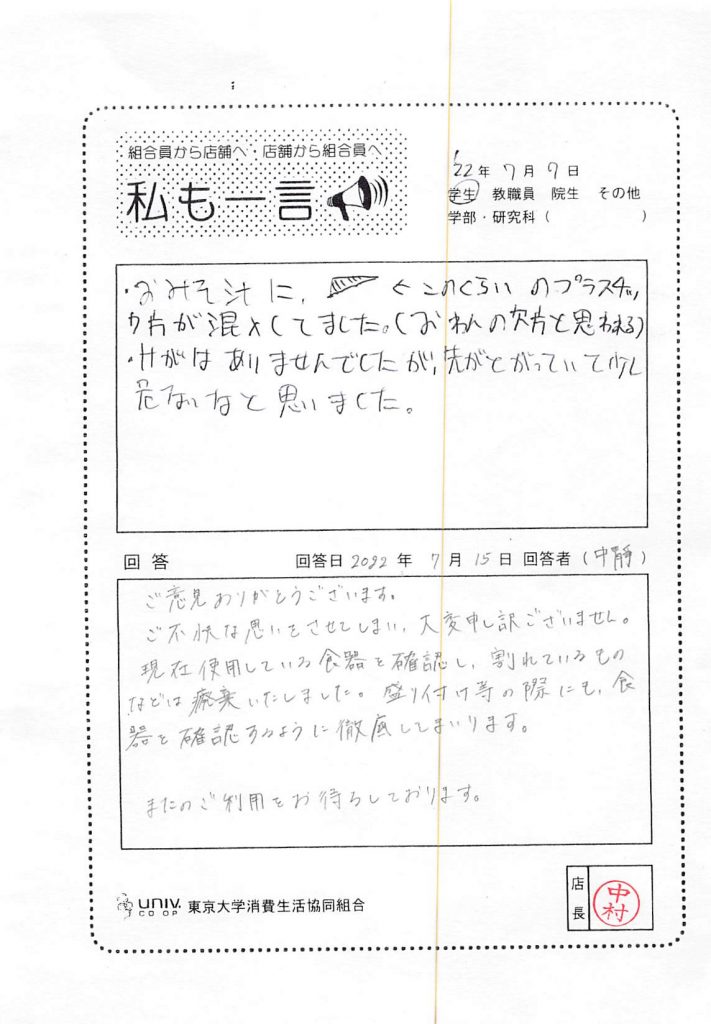 組合員から店舗へ・店舗から組合員へ
私も一言
'22年 7月 9日
学生 教職員 院生 その他
学部・研究科 ( )
・おみそ汁に、 ← このくらい のプラスチッ
ク片が混入してました。(おわんの欠片と思われる)
・けがは ありませんでしたが、先がとがっていて少し
危ないなと思いました。
回答 回答日 2022 年 7 月 15 日 回答者 (中静)
ご意見ありがとうございます。
ご不快な思いをさせてしまい、大変申し訳ございません。
現在使用している食器を確認し、割れているもの
などは廃棄いたしました。盛り付け等の際にも、食
器を確認するように徹底してまいります。
またのご利用をお待ちしております。
UNIV. CO-OP 東京大学消費生活協同組合
店長 中村